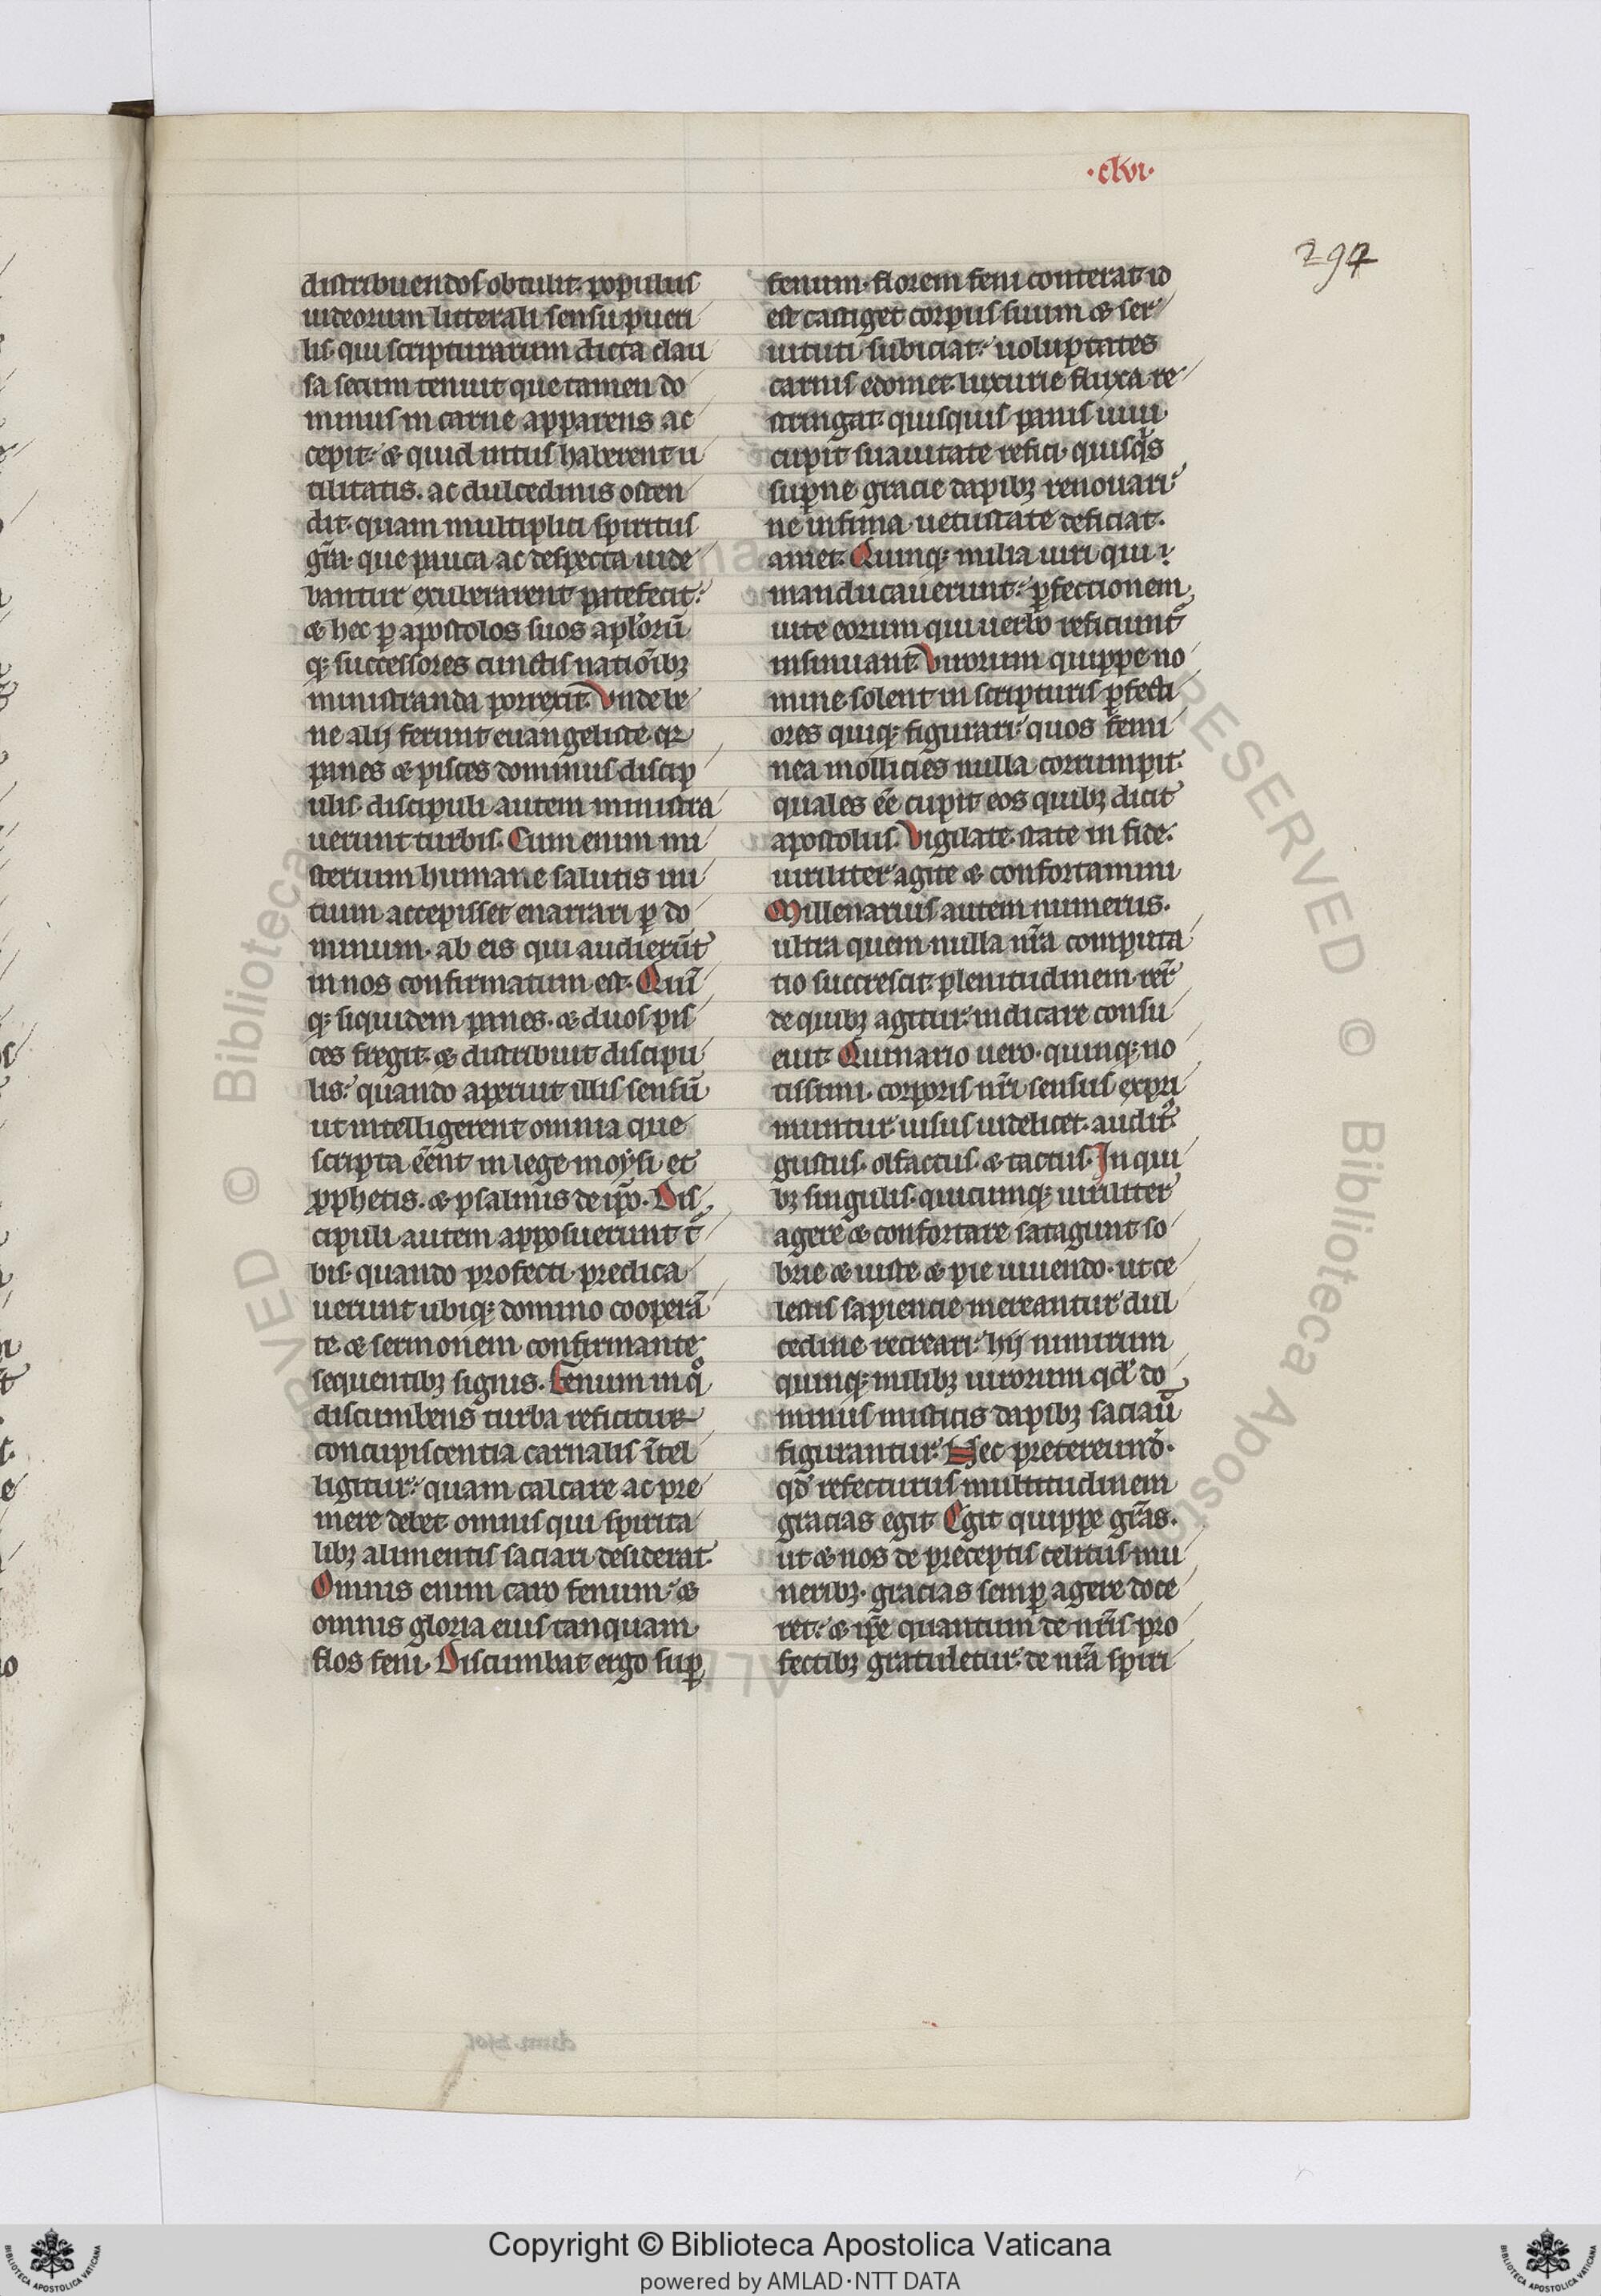 ·clvi·
297
distribuendos obtulit. populus
iudeorum litterali sensu pueri
lis. qui scripturarum dicta clau
sa secum tenuit que tamen do
minus in carne apparens ac
cepit: & quid intus haberent u
tilitatis. ac dulcedinis osten
dit. quam multiplici spiritus
gr̄a. que pauca ac despecta uide
bantur exuberarent patefecit:
& hec ꝑ apostolos suos apl'orū
qꝫ successores cunctis natiōibꝫ
ministranda porrexit. Vnde be
ne alij ferunt euangeliste qꝛ
panes & pisces dominus discip
ulis. discipuli autem ministra
uerunt turbis. Cum enim mi
sterium humane salutis ini
tium accepisset enarrari ꝑ do
minum. ab eis qui audierūt
in nos confirmatum est. Quī
qꝫ siquidem panes. & duos pis
ces fregit. & distribuit discipu
lis: quando aperuit illis sensū
ut intelligerent omnia que
scripta eēnt in lege moysi et
ꝓphetis. & psalmis de ip̄o. Dis
cipuli autem apposuerunt t̄
bis. quando profecti predica
uerunt ubiqꝫ domino cooperā
te. & sermonem confirmante
sequentibꝫ signis. Fenum in qͦ
discumbens turba reficitur
concupiscentia carnalis ītel
ligitur: quam calcare ac pre
mere debet omnis qui spirita
libꝫ alimentis saciari desiderat.
Omnis enim caro fenum: &
omnis gloria eius tanquam
flos feni. Discumbat ergo suꝑ
fenum. florem feni conterat id
est castiget corpus suum & ser
uituti subiciat: uoluptates
carnis edomet. luxurie fluxa re
stringat. quisquis panis uiui
cupit suauitate refici. quisqͥs
suꝑne gracie dapibꝫ renouari
ne infima uetustate deficiat.
amet. Quinqꝫ milia uiri qui
manducauerunt: ꝑfectionem
uite eorum qui uerbo reficiunt᷑
insinuant. Virorum quippe no
mine solent in scripturis ꝑfecti
ores quiqꝫ figurari: quos femi
nea mollicies nulla corrumpit.
quales eē cupit eos quibꝫ dicit
apostolus. Vigilate. state in fide:
uiriliter agite & confortamini
Millenarius autem numerus.
ultra quem nulla nr̄a computa
tio succrescit. plenitudinem reꝝ
de quibꝫ agitur: indicare consu
euit. Quinario uero. quinqꝫ no
tissimi. corporis nr̄i sensus expri
muntur. uisus uidelicet. auditꝰ
gustus. olfactus. & tactus. In qui
bꝫ singulis. quicumqꝫ uiriliter
agere & confortare satagunt so
brie & iuste & pie uiuendo. ut ce
lestis sapiencie mereantur dul
cedine recreari: hij nimirum
quinqꝫ milibꝫ uirorum qd̓ do
minus misticis dapibꝫ saciauꝰ
figurantur. Nec pretereund̄.
qd̄ refecturus multitudinem
gracias egit. Egit quippe gr̄as.
ut & nos de preceptis celitus mu
neribꝫ. gracias semꝑ agere doce
ret: & ip̄e quantum de nr̄is pro
fectibꝫ gratuletur: de nr̄a spiri
Copyright © Biblioteca Apostolica Vaticana
powered by AMLAD·NTT DATA